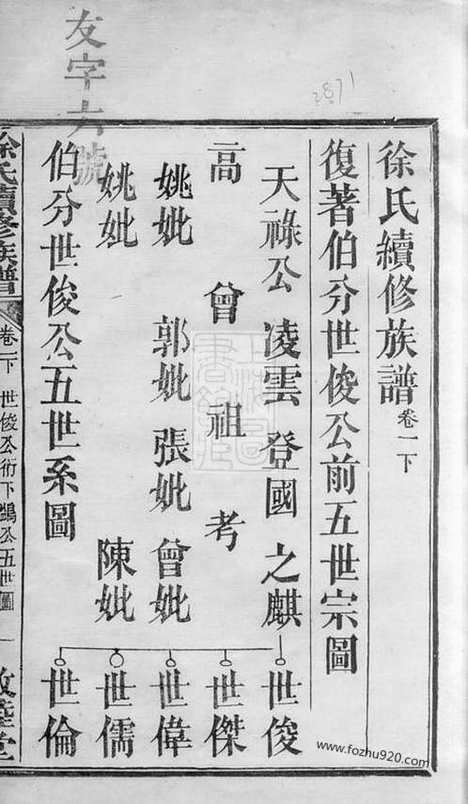 友字六號
2871
徐氏續修族譜卷一下
復著伯分世俊公前五世宗圖
天祿公 凌雲 登國 之麒 世俊
高 曾 祖 考 世傑
姚妣 郭妣 張妣 曾妣 世偉
姚妣 陳妣 世儒
世倫
伯分世俊公五世系圖
徐氏續修族譜 卷一下 世俊公術下鷗公五世圖 一 敦睦堂
上海圖書館藏
www.fozhu920.com